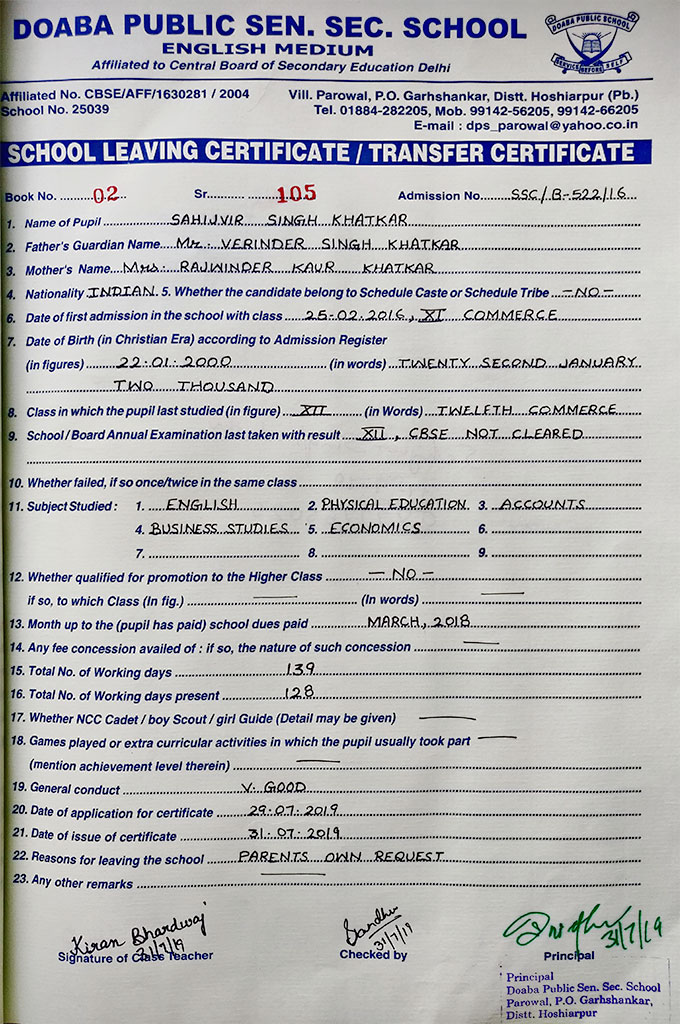 DOABA PUBLIC SEN. SEC. SCHOOL
DOABA PUBLIC SCHOOL
SERVICE BEFORE SELF
ENGLISH MEDIUM
Affiliated to Central Board of Secondary Education Delhi
Affiliated No. CBSE/AFF/1630281 / 2004 Vill. Parowal, P.O. Garhshankar, Distt. Hoshiarpur (Pb.)
School No. 25039 Tel. 01884-282205, Mob. 99142-56205, 99142-66205
E-mail : dps_parowal@yahoo.co.in
SCHOOL LEAVING CERTIFICATE / TRANSFER CERTIFICATE
Book No. 02 Sr. 105 Admission No. SSC/B-522/16
1. Name of Pupil SAHIJVIR SINGH KHATKAR
2. Father's Guardian Name Mr. VERINDER SINGH KHATKAR
3. Mother's Name Mrs. RAJWINDER KAUR KHATKAR
4. Nationality INDIAN 5. Whether the candidate belong to Schedule Caste or Schedule Tribe —NO—
6. Date of first admission in the school with class 25-02-2016, XI COMMERCE
7. Date of Birth (in Christian Era) according to Admission Register
(in figures) 22-01-2000 (in words) TWENTY SECOND JANUARY
TWO THOUSAND
8. Class in which the pupil last studied (in figure) XII (in Words) TWELFTH COMMERCE
9. School / Board Annual Examination last taken with result XII, CBSE NOT CLEARED
10. Whether failed, if so once/twice in the same class
11. Subject Studied : 1. ENGLISH 2. PHYSICAL EDUCATION 3. ACCOUNTS
4. BUSINESS STUDIES 5. ECONOMICS 6.
7. 8. 9.
12. Whether qualified for promotion to the Higher Class — NO —
if so, to which Class (In fig.) — (In words) —
13. Month up to the (pupil has paid) school dues paid MARCH, 2018
14. Any fee concession availed of : if so, the nature of such concession —
15. Total No. of Working days 139
16. Total No. of Working days present 128
17. Whether NCC Cadet / boy Scout / girl Guide (Detail may be given) —
18. Games played or extra curricular activities in which the pupil usually took part —
(mention achievement level therein) —
19. General conduct V. GOOD
20. Date of application for certificate 29-07-2019
21. Date of issue of certificate 31-07-2019
22. Reasons for leaving the school PARENTS OWN REQUEST
23. Any other remarks —
Kiran Bhardwaj Sandhu
31/7/19 31/7/19 31/7/19
Signature of Class Teacher Checked by Principal
Principal
Doaba Public Sen. Sec. School
Parowal, P.O. Garhshankar,
Distt. Hoshiarpur